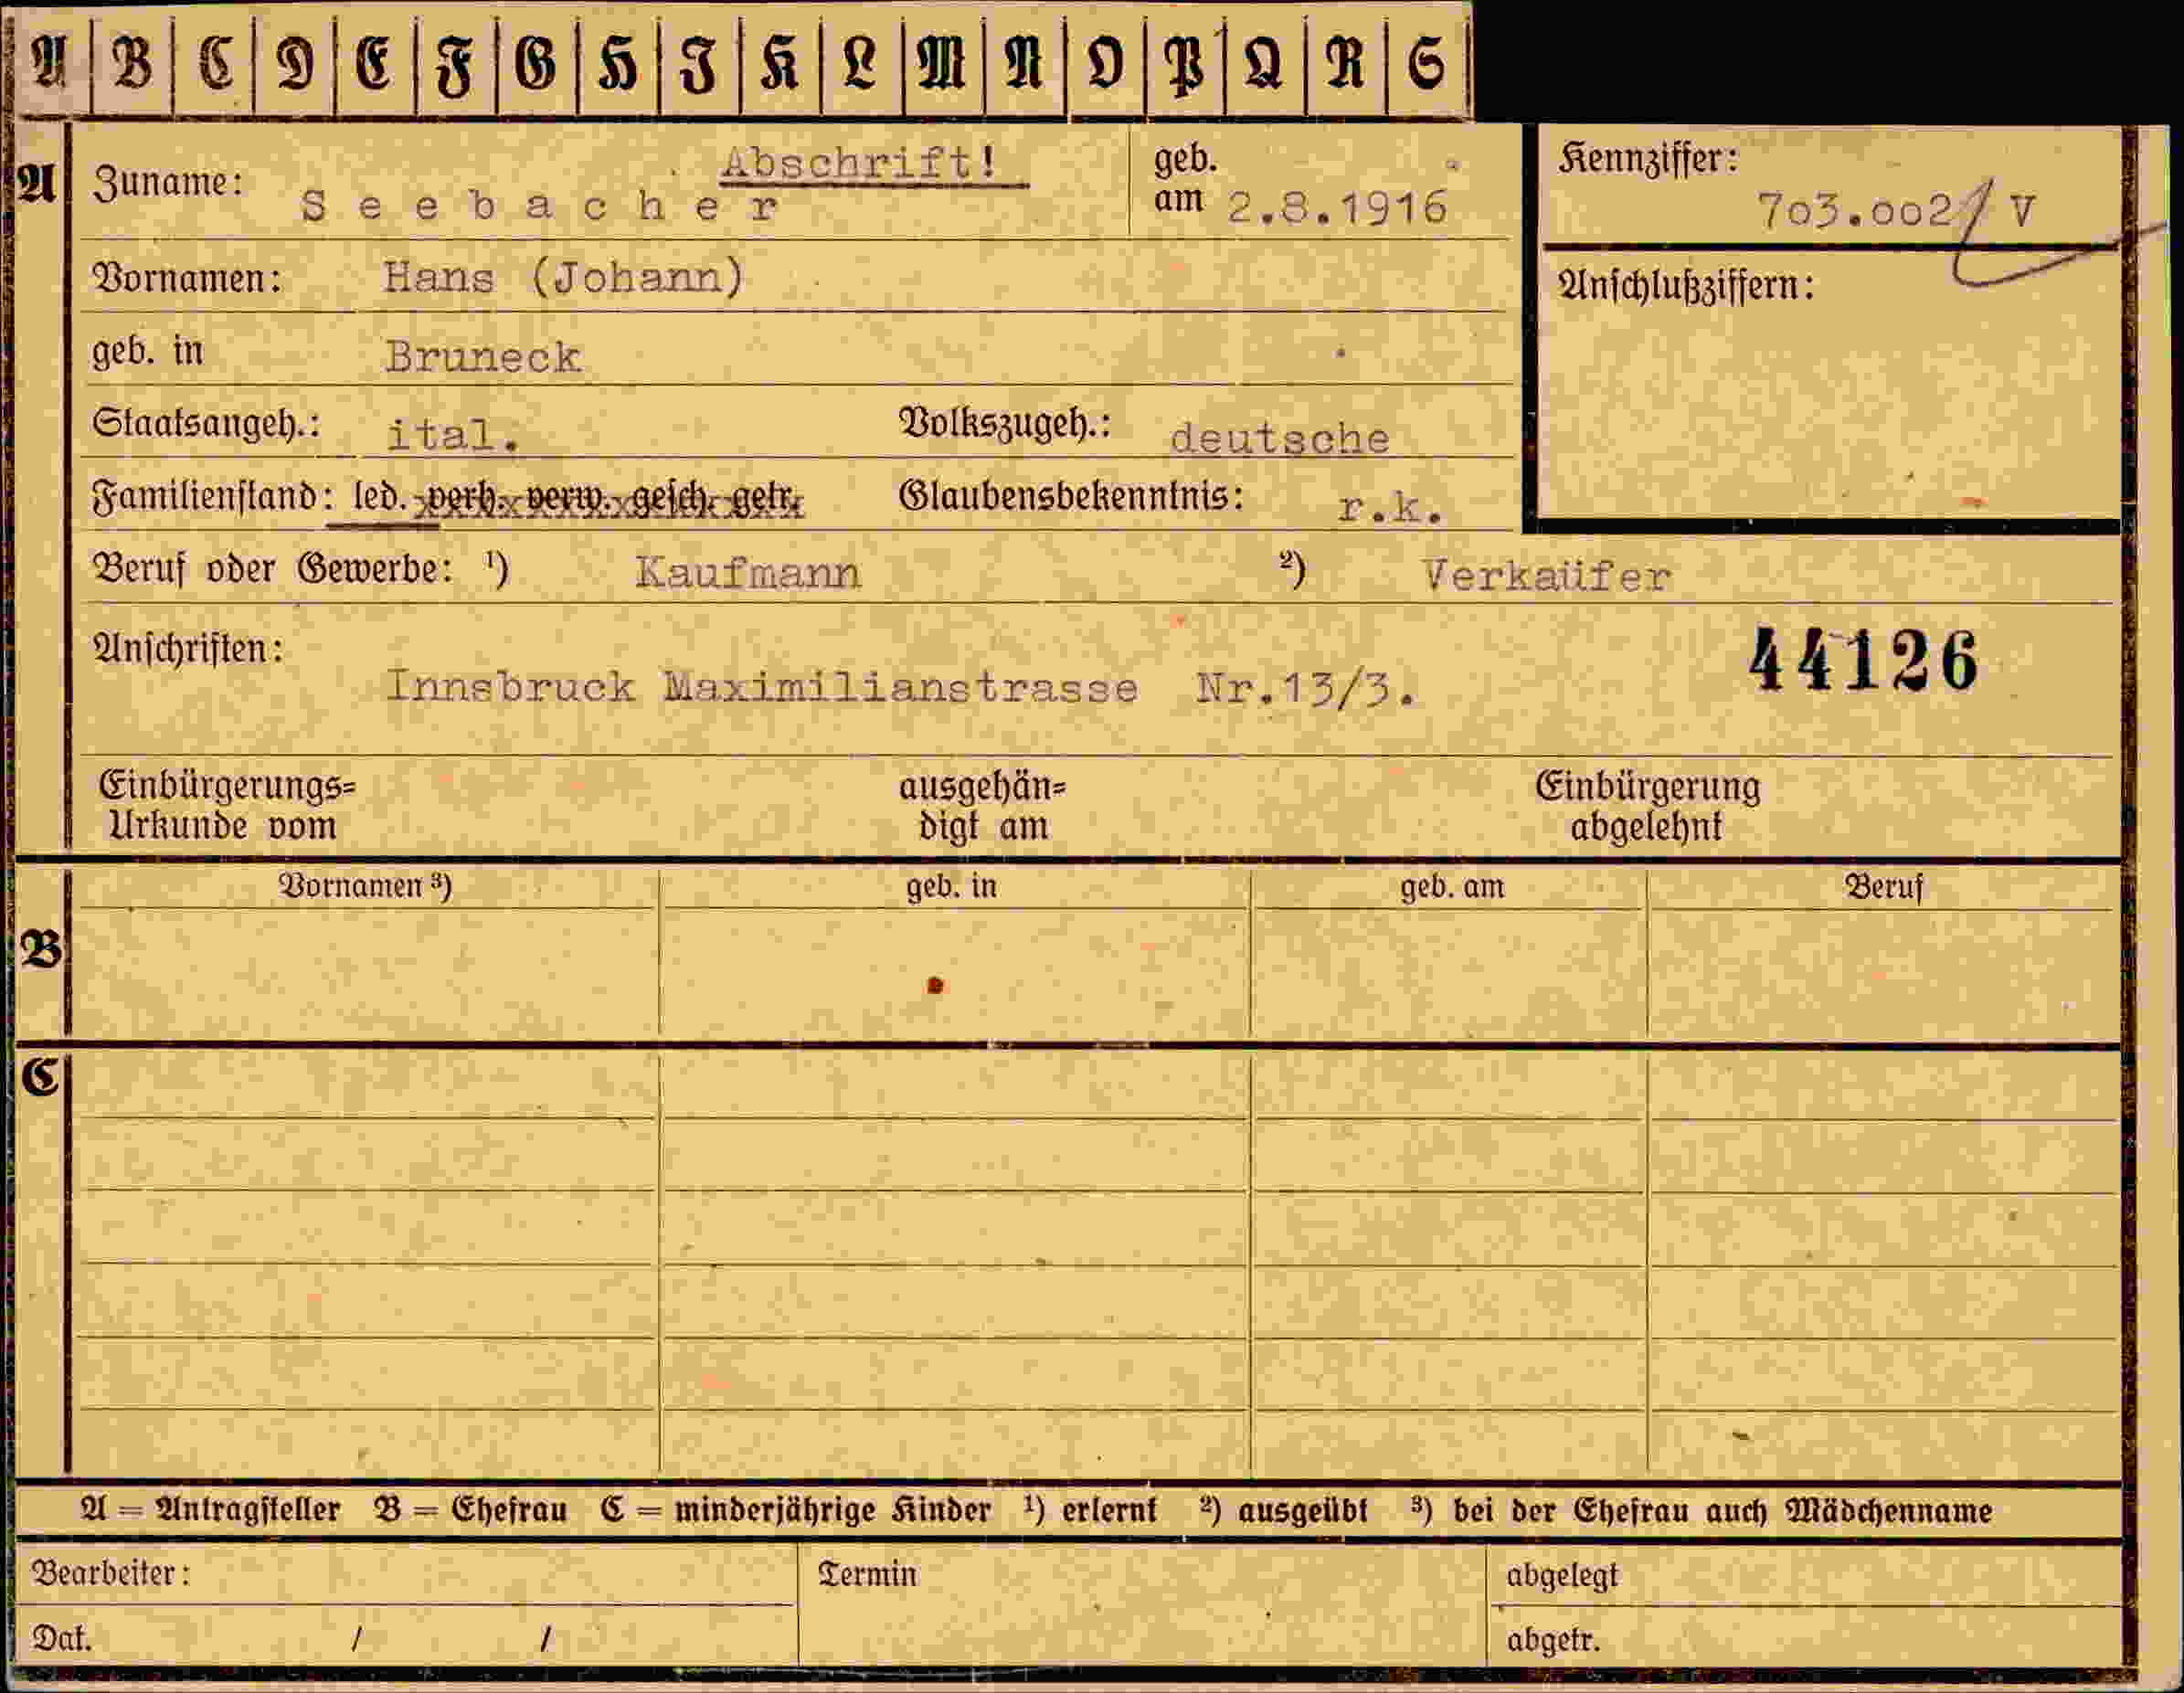 A B C D E F G H I K L M N O P Q R S
A Zuname: Seebacher Abschrift! geb. am 2.8.1916
Kennziffer: 703.002/ V
Vornamen: Hans (Johann)
Anschlußziffern:
geb. in Bruneck
Staatsangeh.: ital. Volkszugeh.: deutsche
Familienstand: led. verh. verw. gesch. getr. Glaubensbekenntnis: r.k.
Beruf oder Gewerbe: ¹) Kaufmann ²) Verkaüfer
Anschriften: 44126
Innsbruck Maximilianstrasse Nr.13/3.
Einbürgerungs= ausgehän= Einbürgerung
Urkunde vom digt am abgelehnt
Vornamen ³) geb. in geb. am Beruf
B
C
A = Antragsteller B = Ehefrau C = minderjährige Kinder ¹) erlernt ²) ausgeübt ³) bei der Ehefrau auch Mädchenname
Bearbeiter: Termin abgelegt
Dat. / / abgetr.